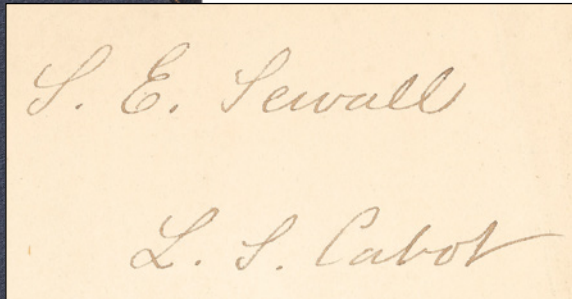 S. E. Sewall
L. S. Cabot